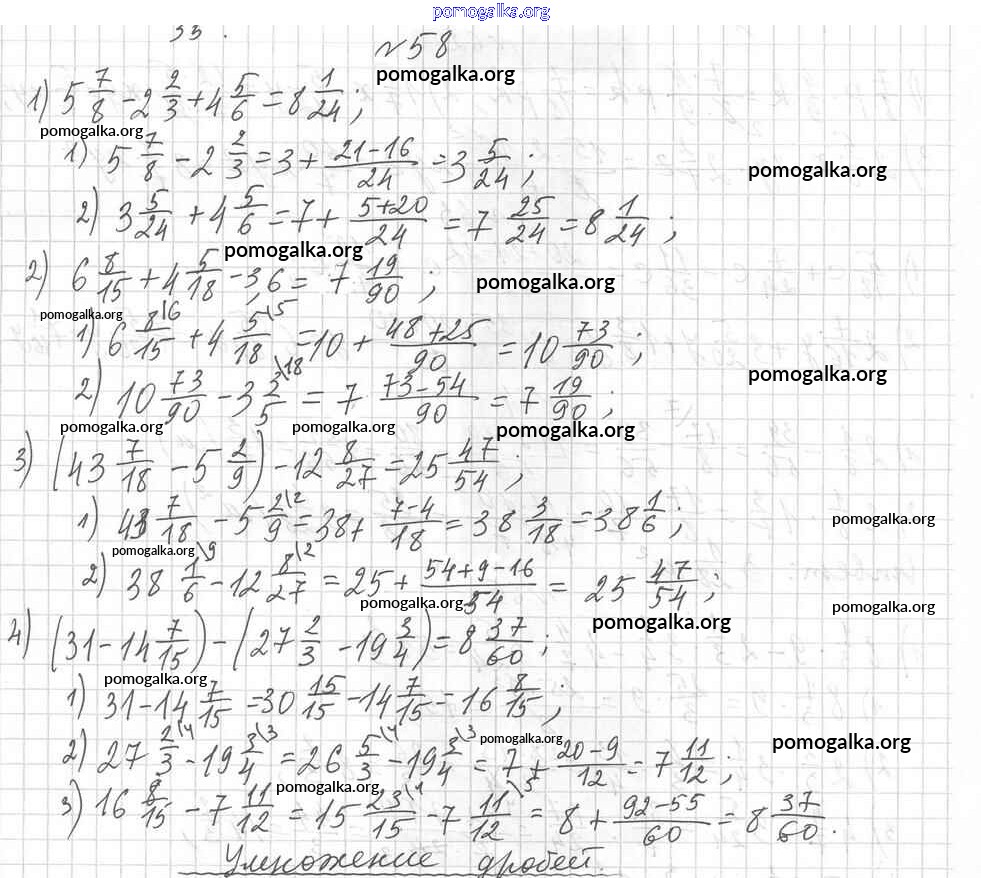 pomogalka.org
33.
№58
pomogalka.org
1) 5 7/8 - 2 2/3 + 4 5/6 = 8 1/24;
pomogalka.org
1) 5 7/8 - 2 2/3 = 3 + (21-16)/24 = 3 5/24;
pomogalka.org
2) 3 5/24 + 4 5/6 = 7 + (5+20)/24 = 7 25/24 = 8 1/24;
pomogalka.org
2) 6 8/15 + 4 5/18 - 3,6 = 7 19/90;
pomogalka.org
pomogalka.org
1) 6 8/15 \6 + 4 5/18 \5 = 10 + (48+25)/90 = 10 73/90;
pomogalka.org
2) 10 73/90 - 3 3/5 \18 = 7 (73-54)/90 = 7 19/90;
pomogalka.org pomogalka.org pomogalka.org
3) (43 7/18 - 5 2/9) - 12 8/27 = 25 47/54;
1) 43 7/18 - 5 2/9 \2 = 38 + (7-4)/18 = 38 3/18 = 38 1/6;
pomogalka.org
pomogalka.org
2) 38 1/6 \9 - 12 8/27 \2 = 25 + (54+9-16)/54 = 25 47/54;
pomogalka.org pomogalka.org
pomogalka.org
4) (31 - 14 7/15) - (27 2/3 - 19 3/4) = 8 37/60;
pomogalka.org
1) 31 - 14 7/15 = 30 15/15 - 14 7/15 = 16 8/15;
pomogalka.org pomogalka.org
2) 27 2/3 \4 - 19 3/4 \3 = 26 5/3 \4 - 19 3/4 \3 = 7 + (20-9)/12 = 7 11/12;
pomogalka.org
3) 16 8/15 - 7 11/12 = 15 23/15 \4 - 7 11/12 \5 = 8 + (92-55)/60 = 8 37/60.
Умножение дробей.
pomogalka.org